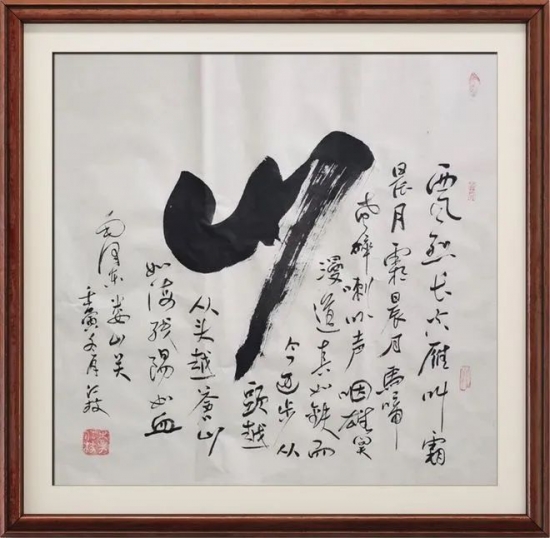 山
西风烈长空雁叫霜
晨月霜晨月馬蹄
声碎喇叭声咽雄关
漫道真如铁而
今迈步从
頭越
从头越苍山
如海残阳如血
毛泽东娄山关
壬寅冬月